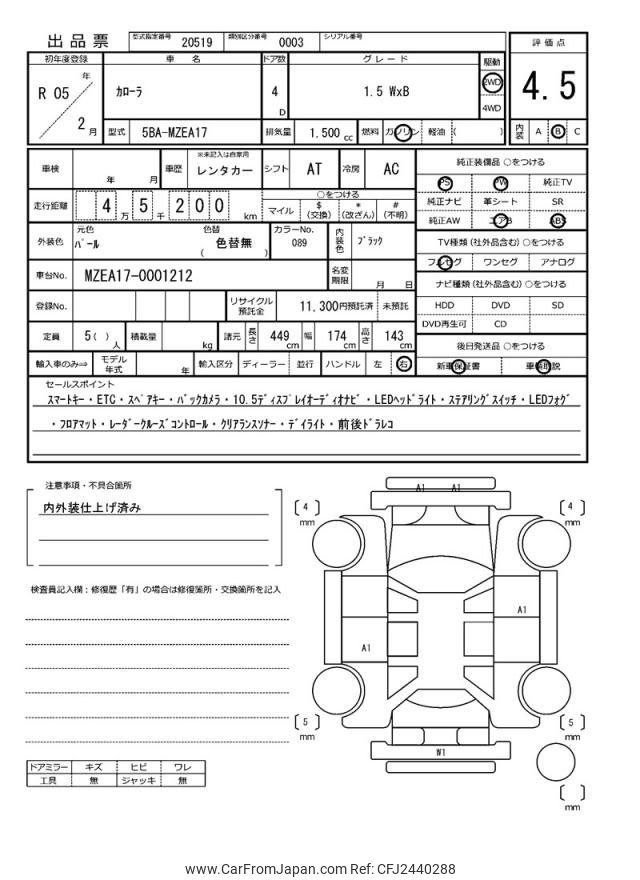 出品票
型式指定番号 20519 類別区分番号 0003 シリアル番号
評価点
4.5
内装 A B C
初年度登録 車名 ドア数 グレード 駆動
R 05 年 2 月
カローラ
4 D
1.5 WxB
2WD
4WD
型式 5BA-MZEA17 排気量 1.500 cc 燃料 ガソリン 軽油 ( )
車検 年 月 車歴 ※未記入は自家用 レンタカー シフト AT 冷房 AC
走行距離 4 万 5 千 2 0 0 km
○をつける
マイル $ (交換) * (改ざん) # (不明)
外装色 元色 パール 色替 ( 色替無 ) カラーNo. 089 内装色 ブラック
車台No. MZEA17-0001212 名変期限 月 日
登録No. リサイクル預託金 11,300円預託済 未預託
定員 5( ) 人 積載量 kg 諸元 長さ 449 cm 幅 174 cm 高さ 143 cm
輸入車のみ⇒ モデル年式 年 輸入区分 ディーラー 並行 ハンドル 左 右
純正装備品 ○をつける
PS PW 純正TV
純正ナビ 革シート SR
純正AW エアB ABS
TV種類(社外品含む) ○をつける
フルセグ ワンセグ アナログ
ナビ種類(社外品含む) ○をつける
HDD DVD SD
DVD再生可 CD
後日発送品 ○をつける
新車保証書 車輌取説
セールスポイント
スマートキー・ETC・スペアキー・バックカメラ・10.5ディスプレイオーディオナビ・LEDヘッドライト・ステアリングスイッチ・LEDフォグ
・フロアマット・レーダークルーズコントロール・クリアランスソナー・デイライト・前後ドラレコ
注意事項・不具合箇所
内外装仕上げ済み
検査員記入欄：修復歴「有」の場合は修復箇所・交換箇所を記入
ドアミラー キズ ヒビ ワレ
工具 無 ジャッキ 無
A1 A1
[4] mm
[4] mm
A1
A1
[5] mm
[5] mm
W1
[ ] mm
www.CarFromJapan.com Ref: CFJ2440288